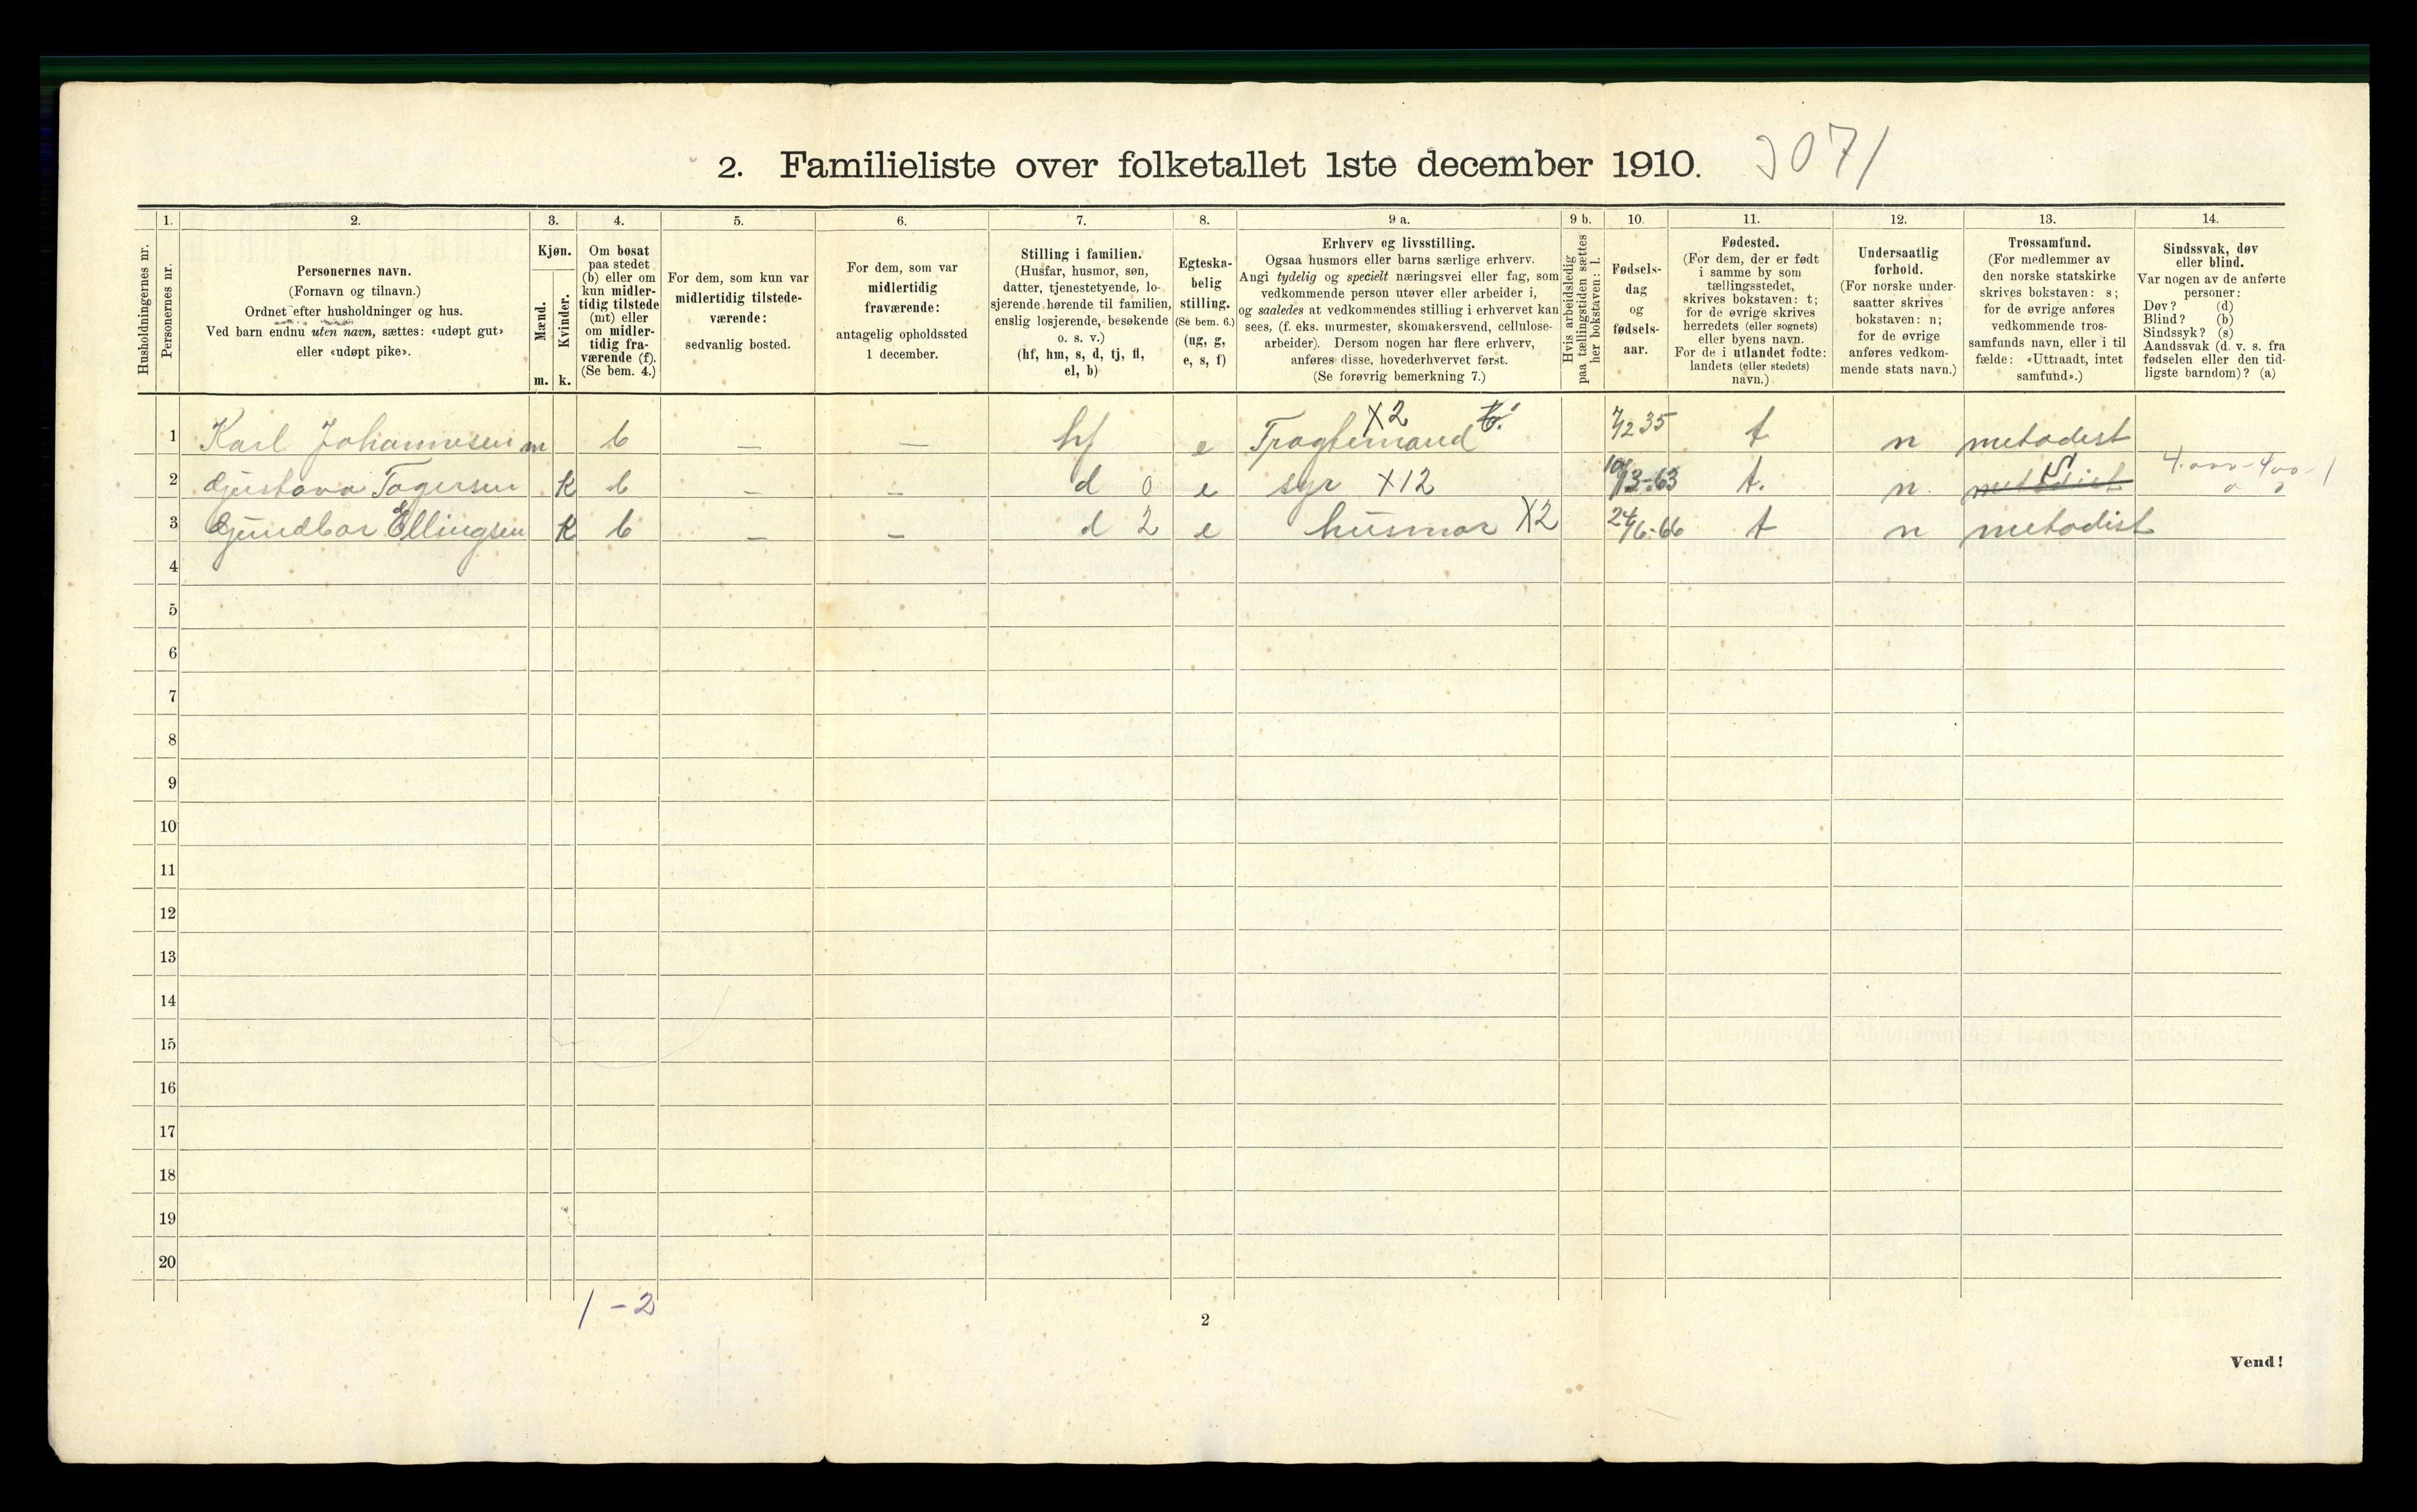 2. Familieliste over folketallet 1ste december 1910.
Husholdningernes nr.
1.
Personernes nr.
2.
Personernes navn.
(Fornavn og tilnavn.)
Ordnet efter husholdninger og hus.
Ved barn endnu uten navn, sættes: «udøpt gut»
eller «udøpt pike».
3.
Kjøn.
Mænd.
Kvinder.
m. k.
4.
Om bosat
paa stedet
(b) eller om
kun midler-
tidig tilstede
(mt) eller
om midler-
tidig fra-
værende (f).
(Se bem. 4.)
5.
For dem, som kun var
midlertidig tilstede-
værende:
sedvanlig bosted.
6.
For dem, som var
midlertidig
fraværende:
antagelig opholdssted
1 december.
7.
Stilling i familien.
(Husfar, husmor, søn,
datter, tjenestetyende, lo-
sjerende hørende til familien,
enslig losjerende, besøkende
o. s. v.)
(hf, hm, s, d, tj, fl,
el, b)
8.
Egteska-
belig
stilling.
(Se bem. 6.)
(ug, g,
e, s, f)
9 a.
Erhverv og livsstilling.
Ogsaa husmors eller barns særlige erhverv.
Angi tydelig og specielt næringsvei eller fag, som
vedkommende person utøver eller arbeider i,
og saaledes at vedkommendes stilling i erhvervet kan
sees, (f. eks. murmester, skomakersvend, cellulose-
arbeider). Dersom nogen har flere erhverv,
anføres disse, hovederhvervet først.
(Se forøvrig bemerkning 7.)
9 b.
Hvis arbeidsledig
paa tællingstiden sættes
her bokstaven: l.
10.
Fødsels-
dag
og
fødsels-
aar.
11.
Fødested.
(For dem, der er født
i samme by som
tællingsstedet,
skrives bokstaven: t;
for de øvrige skrives
herredets (eller sognets)
eller byens navn.
For de i utlandet fødte:
landets (eller stedets)
navn.)
12.
Undersaatlig
forhold.
(For norske under-
saatter skrives
bokstaven: n;
for de øvrige
anføres vedkom-
mende stats navn.)
13.
Trossamfund.
(For medlemmer av
den norske statskirke
skrives bokstaven: s;
for de øvrige anføres
vedkommende tros-
samfunds navn, eller i til
fælde: «Uttraadt, intet
samfund».)
14.
Sindssvak, døv
eller blind.
Var nogen av de anførte
personer:
Døv? (d)
Blind? (b)
Sindssyk? (s)
Aandssvak (d. v. s. fra
fødselen eller den tid-
ligste barndom)? (a)
1 Karl Johannesen m b — — hf e X2 35 t n metodist
2 Gustava Togersen K b — — d 0 e syr X12 13-63 t. n. metodist S
3 Gundbor Ellingsen K b — — d 2 e husmor X2 24/6-66 t n metodist
4
5
6
7
8
9
10
11
12
13
14
15
16
17
18
19
20
1 - 2
2
Vend!